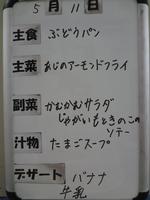 5月11日
主食 ぶどうパン
主菜 あじのアーモンドフライ
副菜 かむかむサラダ
じゃがいもときのこの
ソテー
汁物 たまごスープ
デザート バナナ
牛乳